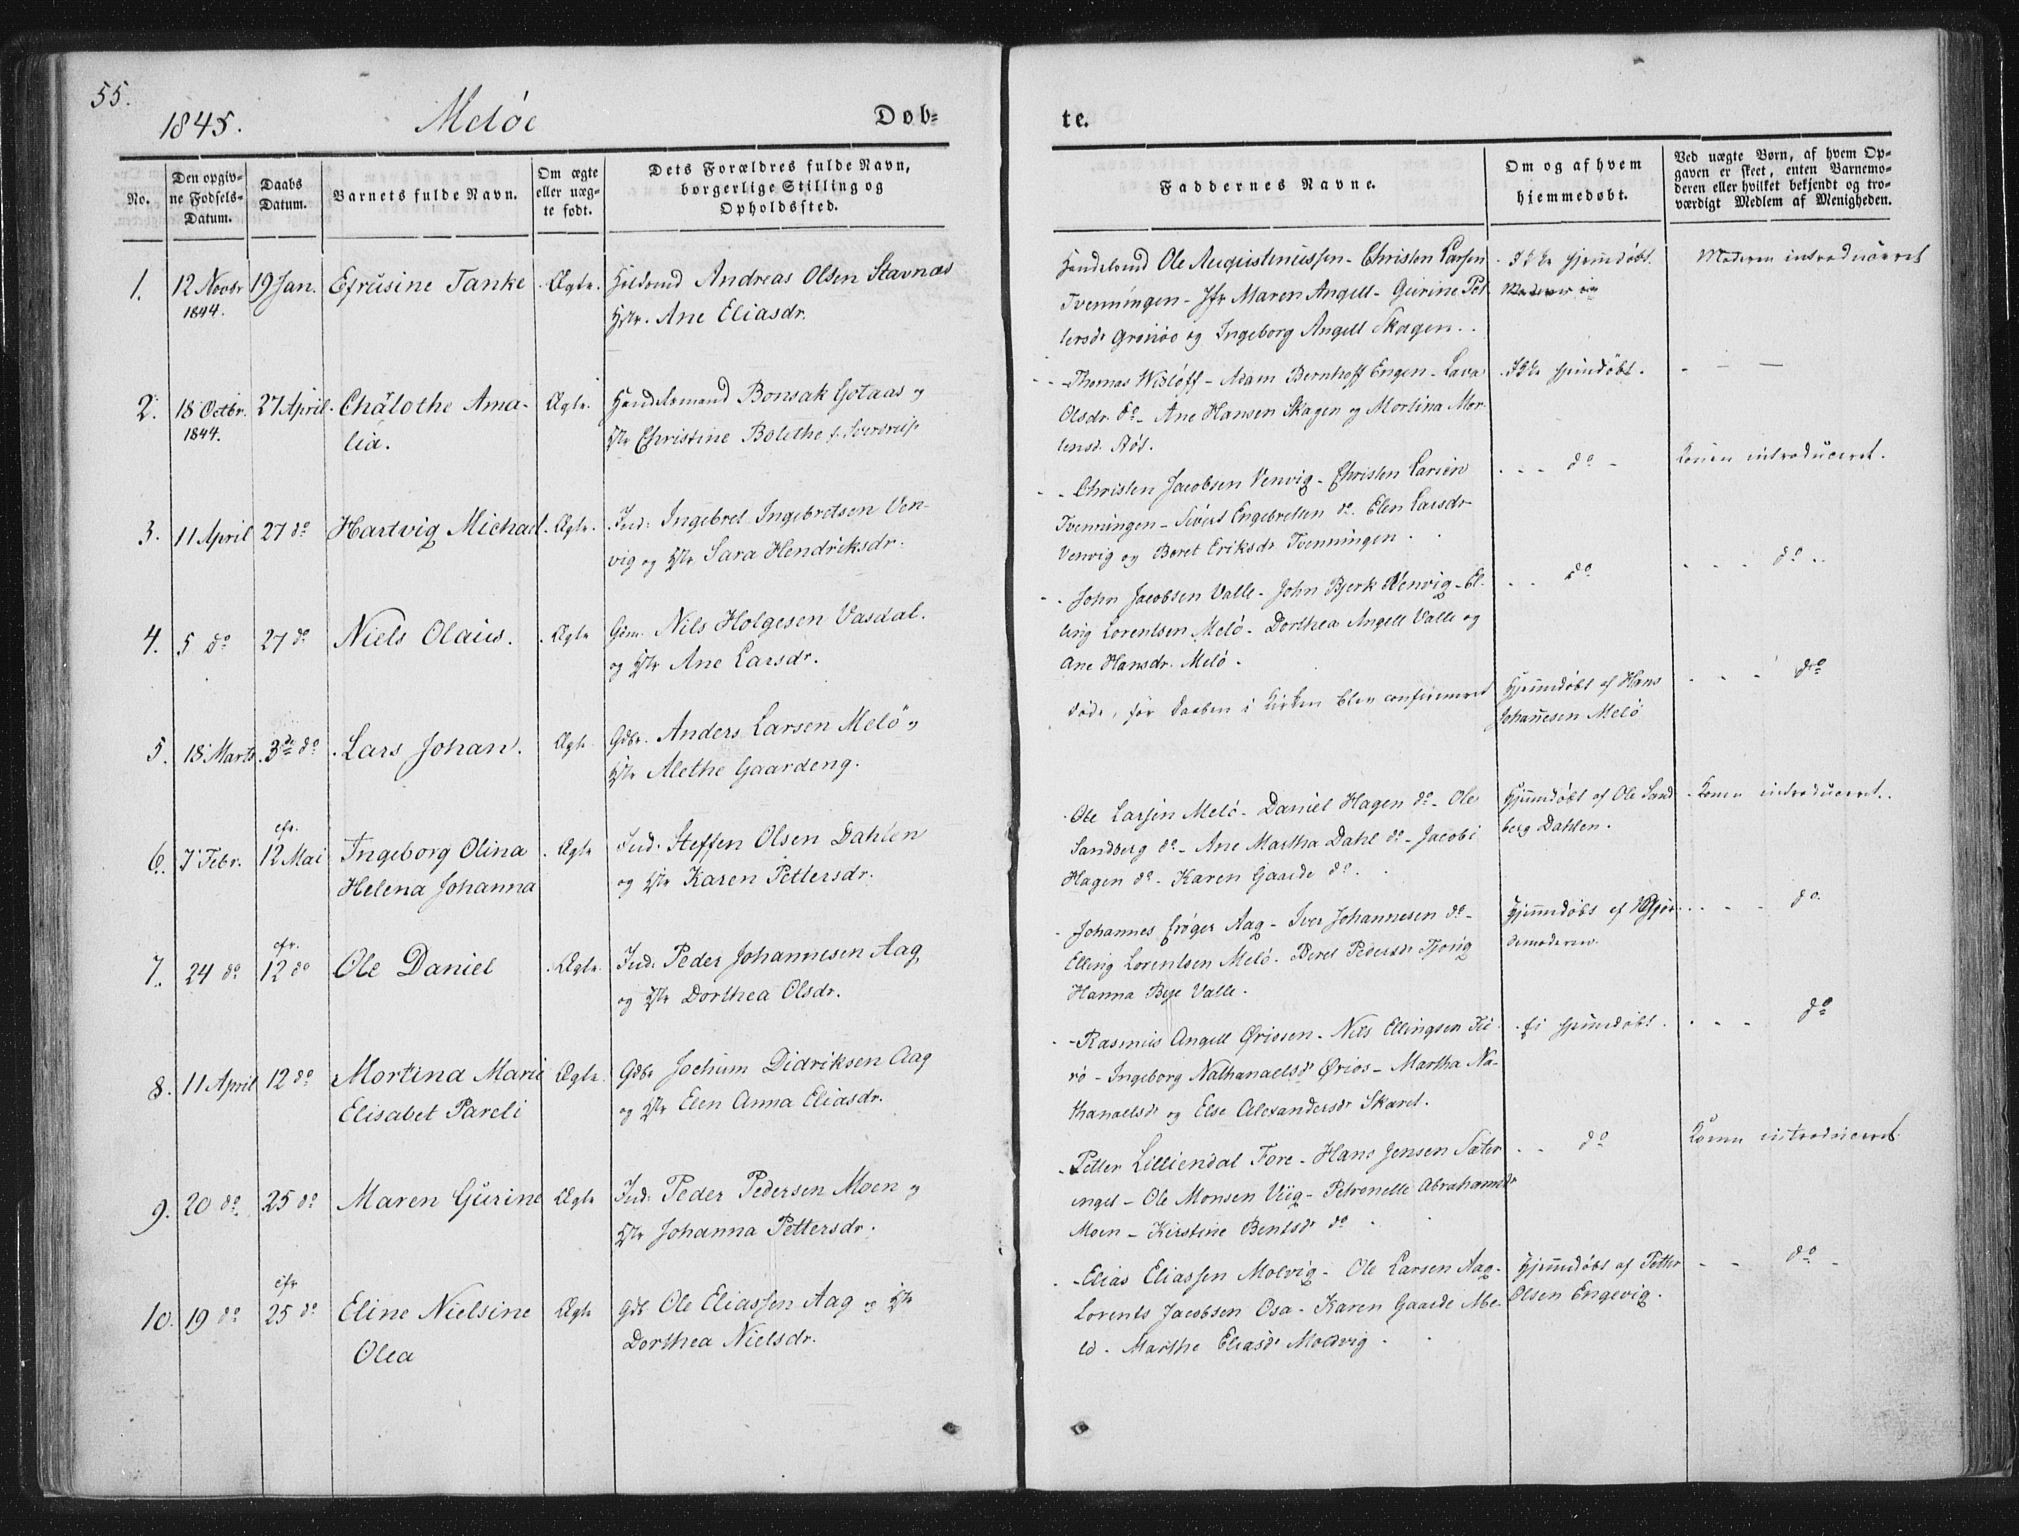 55.
1845. Meløe Døb-
te.
No.
Den opgiv-
ne Fødsels-
Datum.
Daabs
Datum.
Barnets fulde Navn.
Om ægte
eller uæg-
te født.
Dets Forældres fulde Navn,
borgerlige Stilling og
Opholdssted.
Faddernes Navne.
Om og af hvem
hjemmedøbt.
Ved uægte Børn, af hvem Op-
gaven er skeet, enten Barnemo-
deren eller hvilket bekjendt og tro-
værdigt Medlem af Menigheden.
1. 12 Novbr 19 Jan. Efrusine Tanke Ægte. Andreas Olsen Stavnæs
1844.
Ane Eliasdr.
Handelsmd Ole Augustinussen - Christen Larsen
Tvenningen - Jfr Maren Angell - Gurine Pet-
tersdr Grønøe og Ingeborg Angell Skagen.
Ikke hjemdøbt.
Moderen introduceret
2. 18 Octbr. 27 April. Chalothe Ama- Ægte. Handelsmand Bonsak Gotaas og
1844.
lia.
Hstr Christine Bolethe f. Sverdrup
- Thomas Wisløff - Adam Bernhoff Engen - Lava
Olsdr. do - Ane Hansen Skagen og Mortina Mor-
tensd.
Ikke hjemdøbt.
3. 11 April 27 do Hartvig Michael. Ægte. Ind: Ingebret Ingebretsen Ven-
vig og Hstr Sara Hendriksdr.
- Christen Jacobsen Venvig - Christen Larsen
Tvenningen - Sivert Engebretsen do. Elen Larsdr
Venvig og Beret Eriksdr Tvenningen.
do
Konen introduceret.
4. 5 do 27 do Niels Olaus. Ægte Nils Holgesen Vasdal.
og Hstr Ane Larsdr.
John Jacobsen Valle - John Bjerk Venvig - El-
ling Lorentsen Melø - Dorthea Angell Valle og
Ane Hansdr. Melø.
do
do
5. 18 Marts 3die do Lars Johan. Ægte. Gdbr. Anders Larsen Melø og
Hstr Alethe Gaardeng.
døde, før Daaben i Kirken blev confirmeret
Hjemdøbt af Hans
Johannesen Melø
do
cfr.
6. 7 Febr. 12 Mai Ingeborg Olina Ægte Ind: Steffen Olsen Dahlen
Helena Johanna og Hstr Karen Pettersdr.
Ole Larsen Melø - Daniel Hagen do - Ole
Sandberg do - Ane Martha Dahl do - Jacobi
Hagen do - Karen Gaarde do.
Hjemdøbt af Ole Sand-
berg Dahlen.
Konen introduceret.
cfr.
7. 24 do 12 do Ole Daniel Ægte. Ind: Peder Johannesen Aag
og Hstr Dorthea Olsdr.
Johannes Krøger Aag - Iver Johannesen do -
Elling Lorentsen Melø - Beret Pedersdr Tjong
Hanna Bye Valle.
Hjemdøbt af Gjor-
demoderen.
do.
8. 11 April 12 do Mortina Marie Ægte. Gdbr Jochum Didriksen Aag
Elisabet Pareli og Hstr Elen Anna Eliasdr.
- Rasmus Angell Ørissen - Nils Ellingsen
rø - Ingeborg Nathanaelsdr Ørios - Martha Na-
thanaelsdr og Else Alexandersdr Skaret.
Ei hjemdøbt.
do
9. 20 do 25 do Maren Gurine Ægte Ind: Peder Pedersen Moen og
Hstr Johanna Pettersdr.
Petter Lilliendal Fore - Hans Jensen Sæter-
enget - Ole Monsen Viig - Petronelle Abrahamsdr
Moen - Kirstine Bentsdr do.
do
Konen introduceret
cfr
10. 19 do 25 do Eline Nielsine Ægte Gdb Ole Eliassen Aag og Hstr
Olea Dorthea Nielsdr.
- Elias Eliassen Molvig - Ole Larsen Aag -
Lorents Jacobsen Osa - Karen Gaarde Me-
lø. Marthe Eliasdr Molvig.
Hjemdøbt af Petter
Olsen Engevig.
do